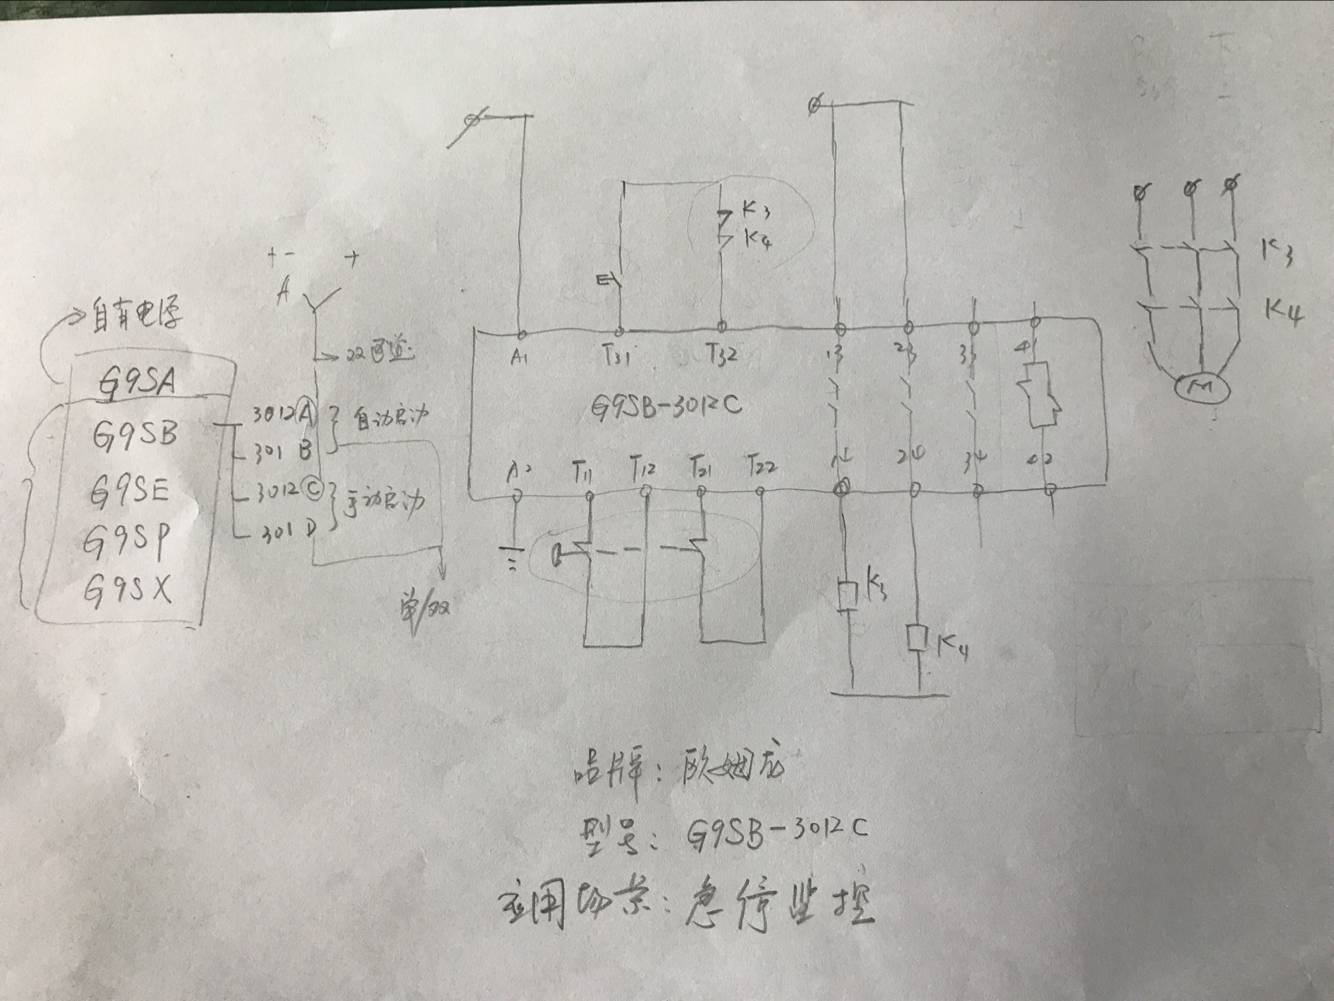 + -
+
A
自有电源
G9SA
G9SB
G9SE
G9SP
G9SX
3012Ⓐ
301 B
自动启动
3012Ⓒ
301 D
手动启动
单/双
K3
K4
E
A1
T31
T32
13
23
33
41
G9SB-3012C
A2
T11
T12
T21
T22
14
24
34
42
K3
K4
K3
K4
M
品牌：欧姆龙
型号：G9SB-3012C
应用场景：急停监控